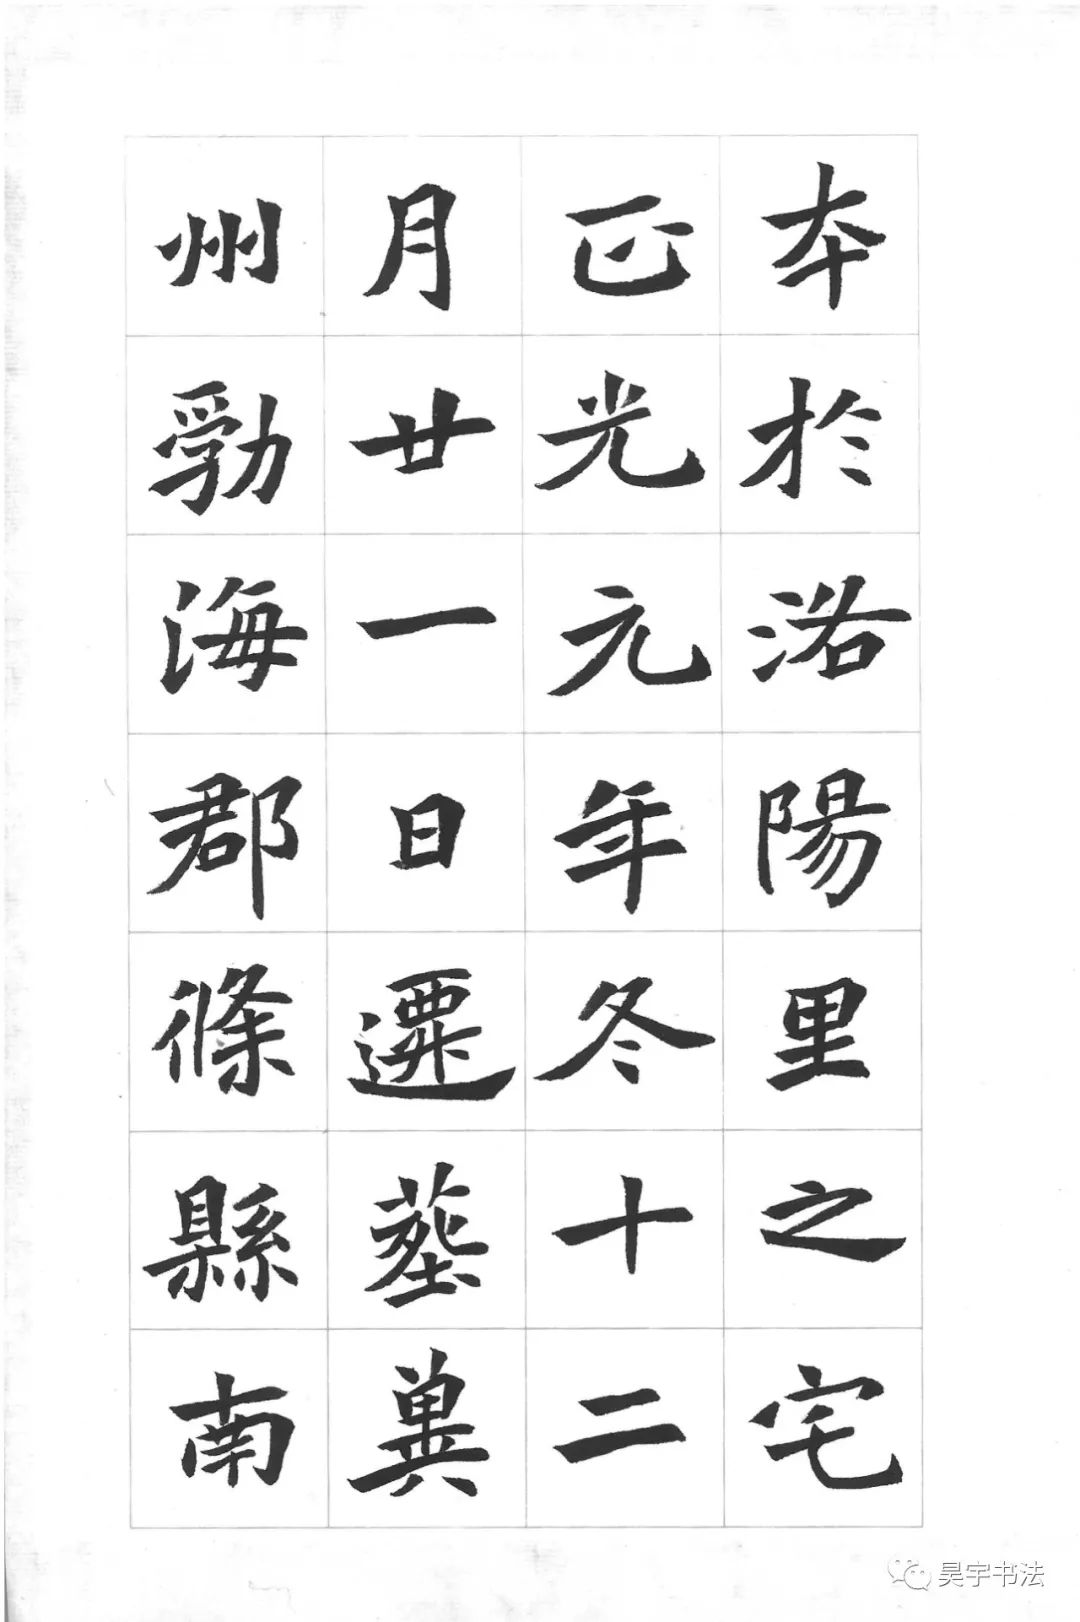 卒於洛陽里之宅
正光元年冬十二
月廿一日遷葬冀
州勃海郡條縣南
昊宇书法